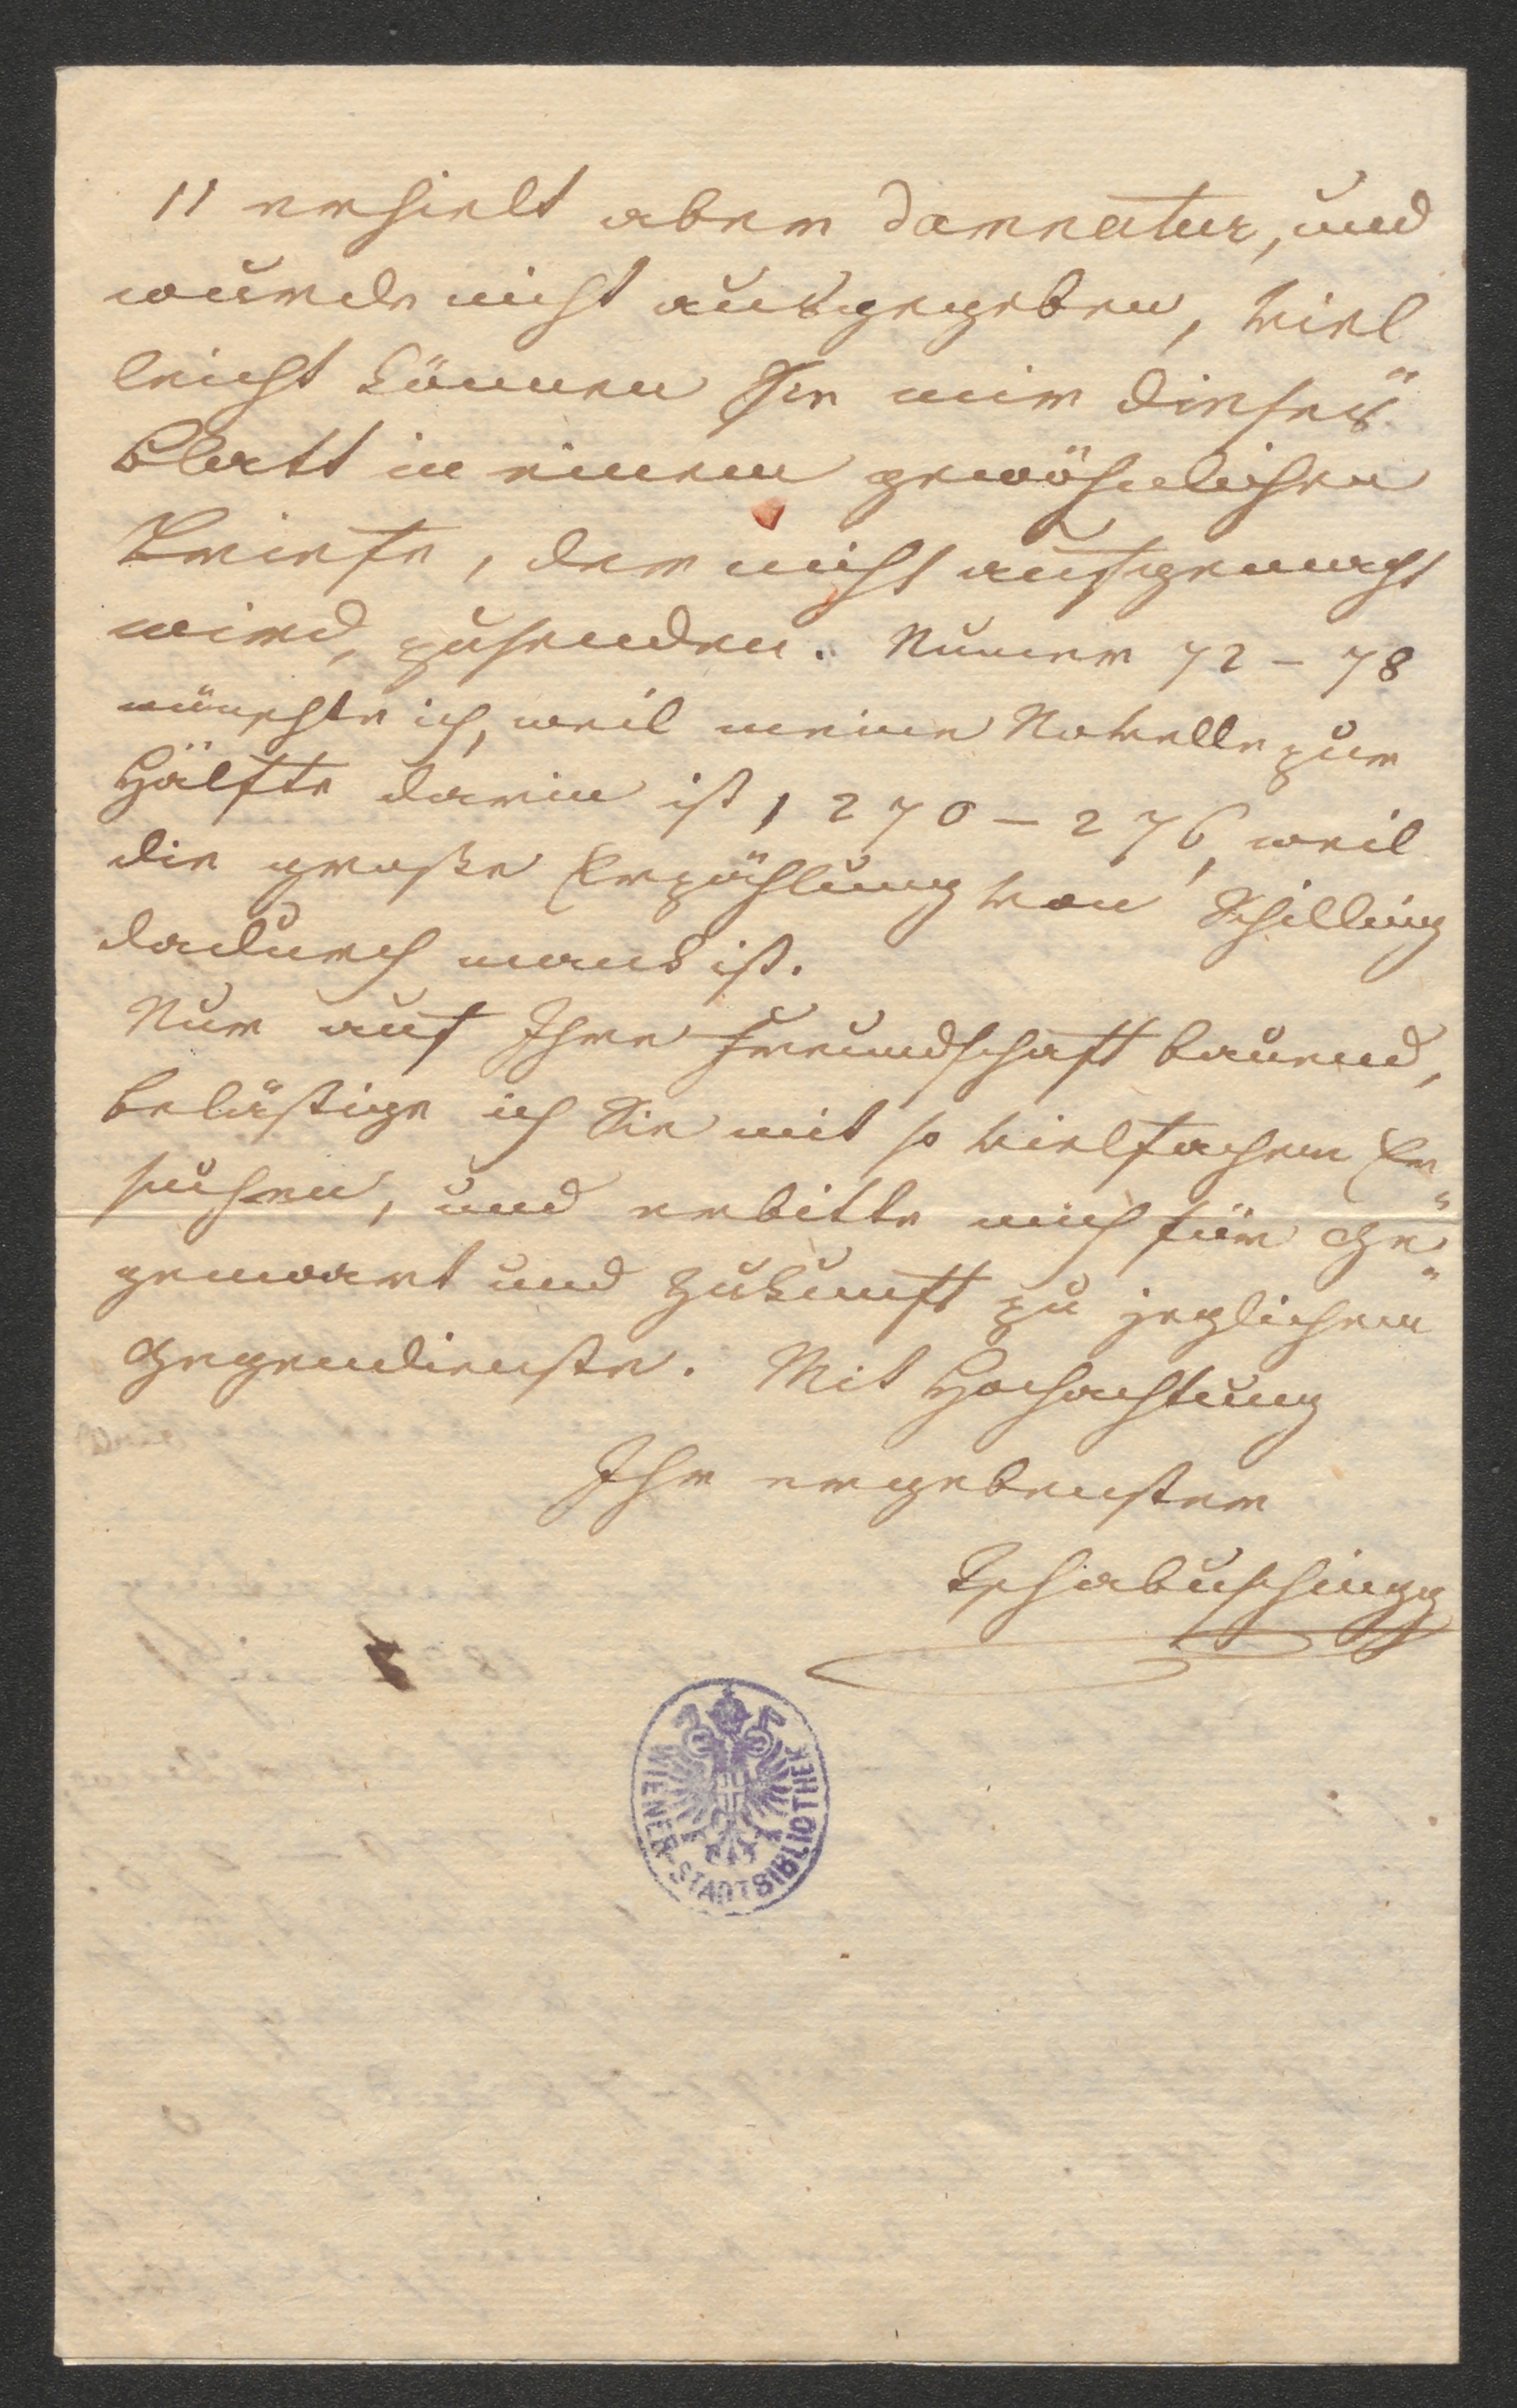 11 erhielt aber damnatur, und
wurde nicht ausgegeben, viel
leicht können Sie mir dieses
Blatt in einem gewöhnlichen
Briefe, der nicht aufgemacht
wird, zusenden. Numer 72 – 78
wünschte ich, weil meine Novelle zur
Hälfte darin ist, 270 – 276, weil
die große Erzählung von Schilling
dadurch mank ist.
Nur auf Ihre Freundschaft bauend,
belästige ich Sie mit so vielfachem Er
suchen, und erbitte mich für Ge
genwart und Zukunft zu jeglichem
Gegendienste. Mit Hochachtung
Ihr ergebenster
Tschabuschnigg
WIENER STADTBIBLIOTHEK